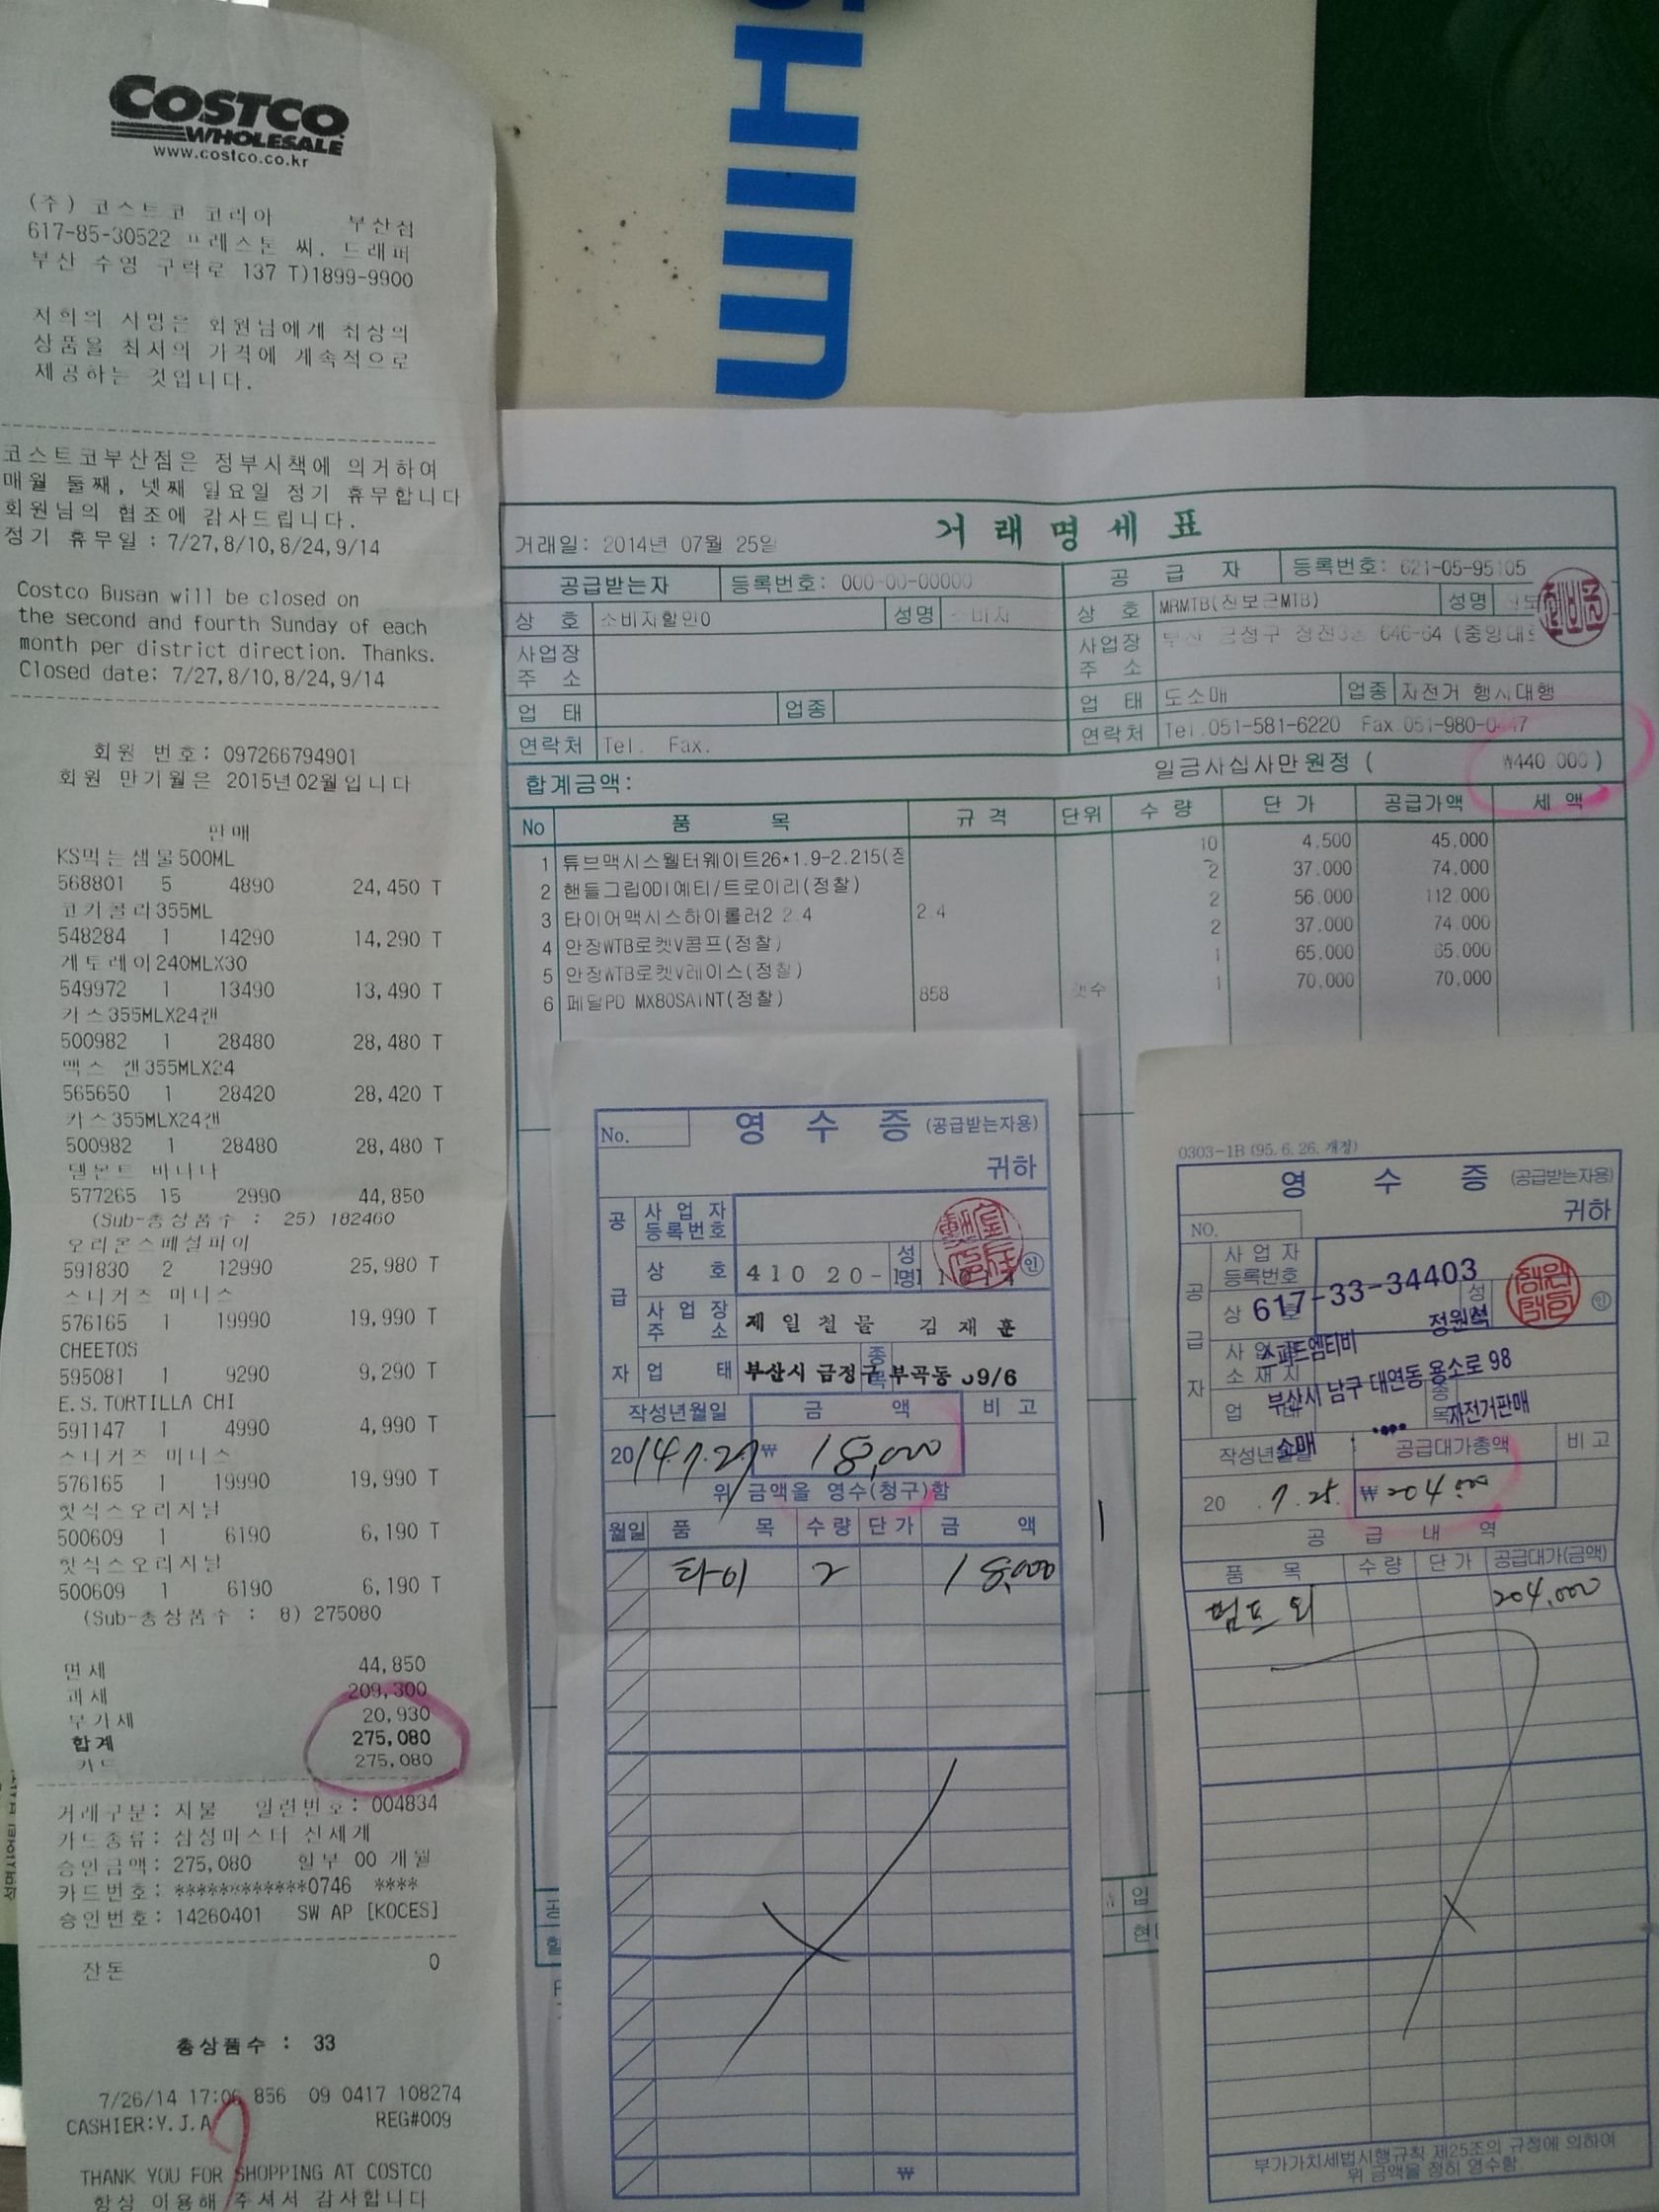 COSTCO
WHOLESALE
www.costco.co.kr
(주) 코스트코 코리아 부산점
617-85-30522 프레스톤 씨. 드래퍼
부산 수영 구락로 137 T)1899-9900
저희의 사명은 회원님에게 최상의
상품을 최저의 가격에 계속적으로
제공하는 것입니다.
코스트코부산점은 정부시책에 의거하여
매월 둘째, 넷째 일요일 정기 휴무합니다
회원님의 협조에 감사드립니다.
정기 휴무일 : 7/27,8/10,8/24,9/14
Costco Busan will be closed on
the second and fourth Sunday of each
month per district direction. Thanks.
Closed date: 7/27,8/10,8/24,9/14
회원 번호: 097266794901
회원 만기월은 2015년02월입니다
판매
KS먹는샘물500ML
568801 5 4890 24,450 T
코카콜라355ML
548284 1 14290 14,290 T
게토레이240MLX30
549972 1 13490 13,490 T
카스355MLX24캔
500982 1 28480 28,480 T
맥스 캔355MLX24
565650 1 28420 28,420 T
카스355MLX24캔
500982 1 28480 28,480 T
델몬트 바나나
577265 15 2990 44,850
(Sub-총상품수 : 25) 182460
오리온스페셜파이
591830 2 12990 25,980 T
스니커즈 미니스
576165 1 19990 19,990 T
CHEETOS
595081 1 9290 9,290 T
E.S.TORTILLA CHI
591147 1 4990 4,990 T
스니커즈 미니스
576165 1 19990 19,990 T
핫식스오리지날
500609 1 6190 6,190 T
핫식스오리지날
500609 1 6190 6,190 T
(Sub-총상품수 : 8) 275080
면세 44,850
과세 209,300
부가세 20,930
합계 275,080
카드 275,080
거래구분: 지불 일련번호: 004834
카드종류: 삼성마스타 신세계
승인금액: 275,080 할부 00 개월
카드번호: ************0746 ****
승인번호: 14260401 SW AP [KOCES]
잔돈 0
총상품수 : 33
7/26/14 17:06 856 09 0417 108274
CASHIER:Y.J.A REG#009
THANK YOU FOR SHOPPING AT COSTCO
항상 이용해 주셔서 감사합니다
거래명세표
거래일: 2014년 07월 25일
공급받는자 등록번호: 000-00-00000
상 호 소비자할인0 성명 소비자
사업장
주 소
업 태 업종
연락처 Tel. Fax.
공 급 자 등록번호: 621-05-95105
상 호 MRMTB(진보근MTB) 성명
사업장
주 소
부산 금정구 장전3동 646-64
업 태 도소매 업종 자전거 행사대행
연락처 Tel.051-581-6220 Fax.051-980-0
합계금액: 일금사십사만 원정 ( ₩440,000 )
No 품 목 규 격 단위 수 량 단 가 공급가액 세 액
1 튜브맥시스웰터웨이트26*1.9-2.215(정 10 4,500 45,000
2 핸들그립ODI예티/트로이리(정찰) 2 37,000 74,000
3 타이어맥시스하이롤러2 2.4 2.4 2 56,000 112,000
4 안장WTB로켓V콤프(정찰) 2 37,000 74,000
5 안장WTB로켓V레이스(정찰) 1 65,000 65,000
6 페달PD MX80SAINT(정찰) 858 1 70,000 70,000
No.
영 수 증 (공급받는자용)
귀하
공 급 자
사업자
등록번호
상 호 410 20- 성명 인
사업장
주 소 제일철물 김재훈
업 태 부산시 금정구 부곡동 9/6
종목
작성년월일 금 액 비 고
2014.7.2 ₩ 18,000
위 금액을 영수(청구)함
월일 품 목 수량 단가 금 액
타이 2 18,000
₩
0303-1B (95. 6. 26. 개정)
영 수 증 (공급받는자용)
귀하
NO.
공 급 자
사업자
등록번호
상 호 617-33-34403 성명 인
스피드엠티비 정원석
부산시 남구 대연동 용소로 98
소매 자전거판매
작성년월일 공급대가총액 비 고
20 . 7. 25. ₩ 204,000
공 급 내 역
품 목 수량 단가 공급대가(금액)
펌프 외 204,000
부가가치세법시행규칙 제25조의 규정에 의하여
위 금액을 정히 영수함